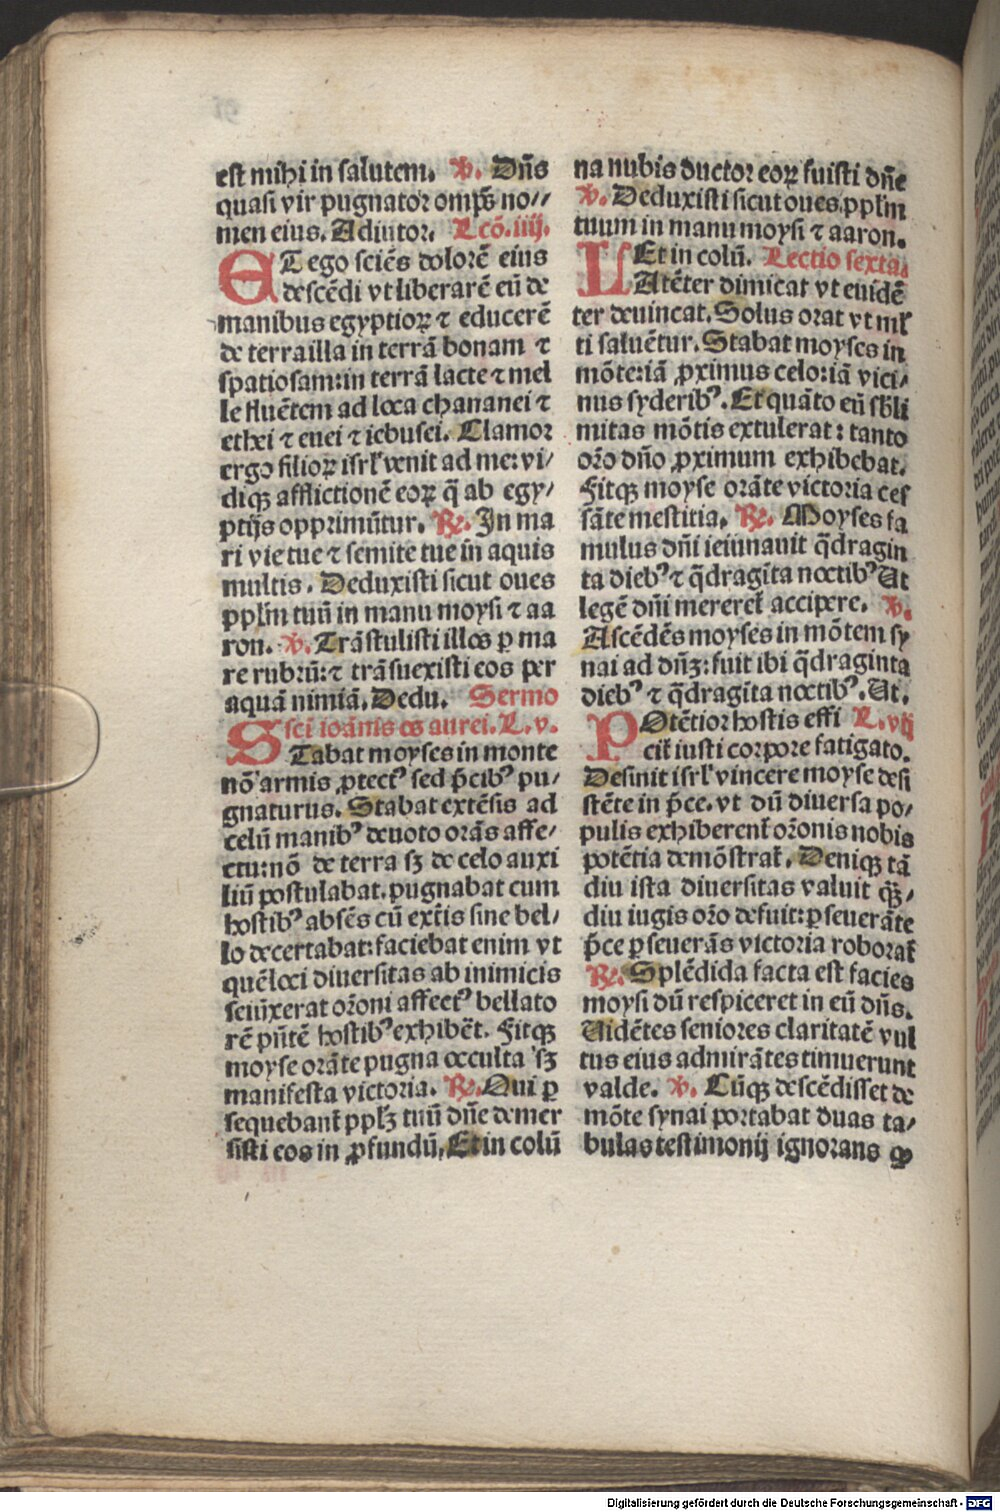 est mihi in salutem. ℣. Dn̄s
quasi vir pugnator omp̄s no//
men eius. Adiutor. Lcō. iiij.
ET ego sciēs dolorē eius
descēdi vt liberarē eū de
manibus egyptioꝝ ⁊ educerē
de terra illa in terrā bonam ⁊
spatiosam: in terrā lacte ⁊ mel
le fluētem ad loca chananei ⁊
ethei ⁊ euei ⁊ iebusei. Clamor
ergo filioꝝ isrl̄ venit ad me: vi/
diqꝫ afflictionē eoꝝ q̄ ab egy/
ptijs opprimūtur. ℟. In ma
ri vie tue ⁊ semite tue in aquis
multis. Deduxisti sicut oues
ppl̄m tuū in manu moysi ⁊ aa
ron. ℣. Trāstulisti illos ꝑ ma
re rubrū: ⁊ trāsuexisti eos per
aquā nimiā. Dedu. Sermo
scī ioānis os aurei. L. v.
STabat moyses in monte
nō armis ꝓtectꝰ sed p̄cibꝰ pu/
gnaturus. Stabat extēsis ad
celū manibꝰ deuoto orās affe/
ctu: nō de terra sꝫ de celo auxi
liū postulabat. pugnabat cum
hostibꝰ absēs cū ext̄is sine bel/
lo decertabat: faciebat enim vt
quē loci diuersitas ab inimicis
seiūxerat or̄oni affectꝰ bellato
rē pn̄tē hostibꝰ exhibēt. Fitqꝫ
moyse orāte pugna occulta sꝫ
manifesta victoria. ℟. Qui ꝑ
sequebant̄ pplꝫ tuū dn̄e demer
sisti eos in ꝓfundū. Et in colū
na nubis ductor eoꝝ fuisti dn̄e
℣. Deduxisti sicut oues ppl̄m
tuum in manu moysi ⁊ aaron.
Et in colū. Lectio sexta.
LAtēter dimicat vt euidē
ter deuincat. Solus orat vt ml̄
ti saluētur. Stabat moyses in
mōte: iā ꝓximus celo: iā vici/
nus syderibꝰ. Et quāto eū sb̄li
mitas mōtis extulerat: tanto
or̄o dn̄o ꝓximum exhibebat.
Fitqꝫ moyse orāte victoria ces
sāte mestitia. ℟. Moyses fa
mulus dn̄i ieiunauit q̄dragin
ta diebꝰ ⁊ q̄dragīta noctibꝰ Ut
legē dn̄i mereret̄ accipere. ℣.
Ascēdēs moyses in mōtem sy
nai ad dn̄ꝫ: fuit ibi q̄draginta
diebꝰ ⁊ q̄dragīta noctibꝰ. Ut.
POtētior hostis effi L. vij
cit̄ iusti corpore fatigato.
Desinit isrl̄ vincere moyse desi
stēte in p̄ce. vt dū diuersa po/
pulis exhiberent̄ or̄onis nobis
potētia demōstrat̄. Deniqꝫ tā
diu ista diuersitas valuit qꝫ̄/
diu iugis or̄o defuit: ꝑseuerāte
p̄ce ꝑseuerās victoria roborat̄
℟. Splēdida facta est facies
moysi dū respiceret in eū dn̄s.
Uidētes seniores claritatē vul
tus eius admirātes timuerunt
valde. ℣. Cūqꝫ descēdisset de
mōte synai portabat duas ta/
bulas testimonij ignorans ꝙ
Digitalisierung gefördert durch die Deutsche Forschungsgemeinschaft - DFG